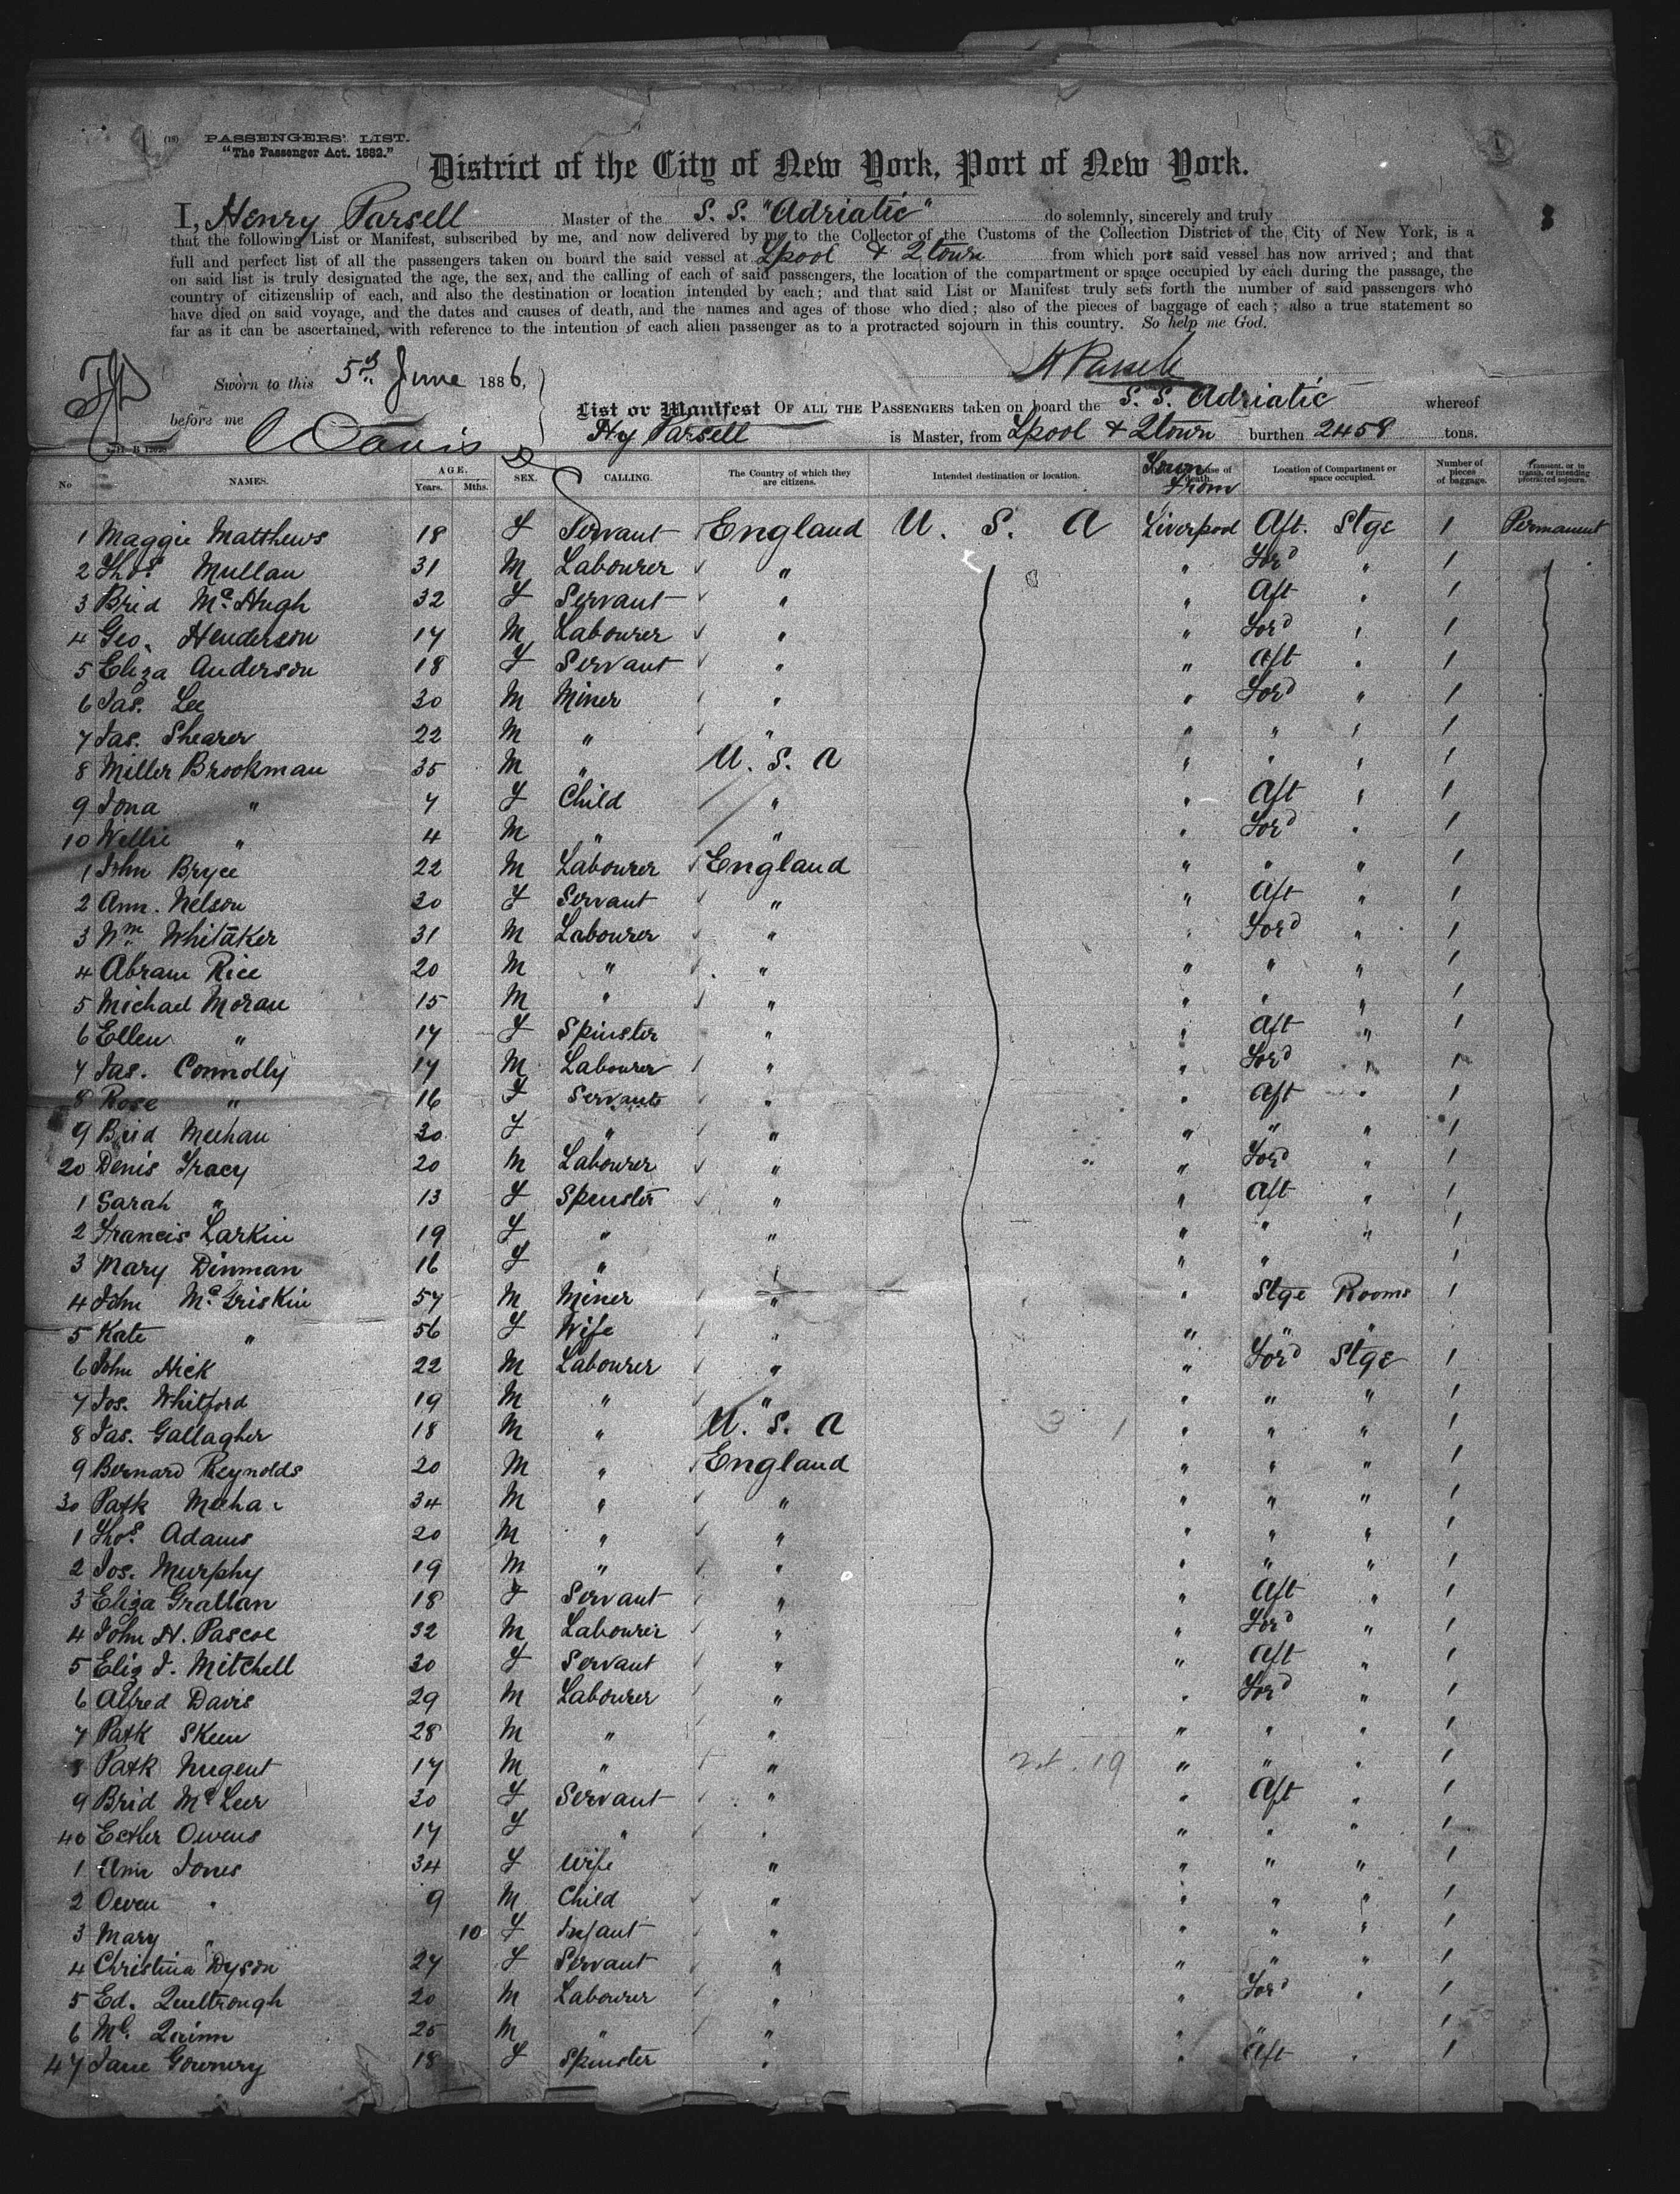 (19) PASSENGERS' LIST.
"The Passenger Act. 1882."
District of the City of New York, Port of New York.
I, Henry Parsell Master of the S. S. "Adriatic" do solemnly, sincerely and truly
that the following List or Manifest, subscribed by me, and now delivered by me to the Collector of the Customs of the Collection District of the City of New York, is a
full and perfect list of all the passengers taken on board the said vessel at Lpool & Qtown from which port said vessel has now arrived; and that
on said list is truly designated the age, the sex, and the calling of each of said passengers, the location of the compartment or space occupied by each during the passage, the
country of citizenship of each, and also the destination or location intended by each; and that said List or Manifest truly sets forth the number of said passengers who
have died on said voyage, and the dates and causes of death, and the names and ages of those who died; also of the pieces of baggage of each; also a true statement so
far as it can be ascertained, with reference to the intention of each alien passenger as to a protracted sojourn in this country. So help me God.
H Parsell
Sworn to this 5th June 1886,
before me
List or Manifest OF ALL THE PASSENGERS taken on board the S. S. Adriatic whereof
Hy Parsell is Master, from Lpool & Qtown burthen 2458 tons.
No NAMES. AGE. Years. Mths. SEX. CALLING. The Country of which they are citizens. Intended destination or location. Town From Location of Compartment or space occupied. Number of pieces of baggage. Transient, or in transit, or intending protracted sojourn.
1 Maggie Matthews 18 F Servant England U. S. A Liverpool Aft. Stge 1 Permanent
2 Thos. Mullan 31 M Labourer " " Ford " 1
3 Brid McHugh 32 F Servant " " Aft " 1
4 Geo. Henderson 17 M Labourer " " Ford " 1
5 Eliza Anderson 18 F Servant " " Aft " 1
6 Jas. Lee 30 M Miner " " Ford " 1
7 Jas. Shearer 22 M " " " " " 1
8 Miller Brookman 35 M " U. S. A " " " 1
9 Iona " 7 F Child " " Aft " 1
10 Willie " 4 M " " " Ford " 1
1 John Bryce 22 M Labourer England " " " 1
2 Ann. Nelson 30 F Servant " " Aft " 1
3 Wm Whitaker 31 M Labourer " " Ford " 1
4 Abram Rice 20 M " " " " " 1
5 Michael Moran 15 M " " " " " 1
6 Ellen " 17 F Spinster " " Aft " 1
7 Jas. Connolly 17 M Labourer " " Ford " 1
8 Rose " 16 F Servant " " Aft " 1
9 Brid Meehan 30 F " " " " " 1
20 Denis Tracy 20 M Labourer " " Ford " 1
1 Sarah " 13 F Spinster " " Aft " 1
2 Francis Larkin 19 F " " " " " 1
3 Mary Dinman 16 F " " " " 1
4 John McGriskin 57 M Miner " " Stge Rooms 1
5 Kate " 56 F Wife " " " "
6 John Hick 22 M Labourer " " Ford Stge 1
7 Jos. Whitford 19 M " " " " " 1
8 Jas. Gallagher 18 M " U. S. A " " " 1
9 Bernard Reynolds 20 M " England " " " 1
30 Patk Meehan 34 M " " " " " 1
1 Thos. Adams 20 M " " " " " 1
2 Jos. Murphy 19 M " " " " " 1
3 Eliza Grattan 18 F Servant " " Aft " 1
4 John H. Pascoe 32 M Labourer " " Ford " 1
5 Eliz J. Mitchell 30 F Servant " " Aft " 1
6 Alfred Davis 29 M Labourer " " Ford " 1
7 Patk Skeen 28 M " " " " " 1
8 Patk Nugent 17 M " " " " " 1
9 Brid McLeer 30 F Servant " " Aft " 1
40 Esther Owens 17 F " " " " " 1
1 Ann Jones 34 F Wife " " " " 1
2 Owen " 9 M Child " " " " 1
3 Mary " 10 F Infant " " " " 1
4 Christina Dyson 27 F Servant " " " " 1
5 Ed. Qualtrough 20 M Labourer " " Ford " 1
6 Ml. Quinn 25 M " " " " 1
47 Jane 18 F Spinster " " Aft " 1